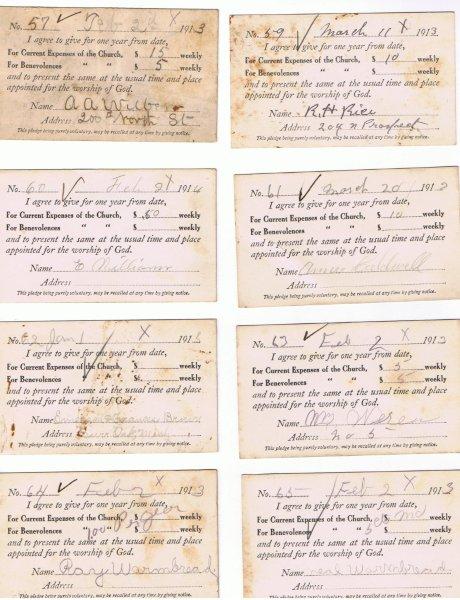 No. 57 ✓ Feb 2 X 1913
I agree to give for one year from date,
For Current Expenses of the Church, $ 15 weekly
For Benevolences " " $ 5 weekly
and to present the same at the usual time and place
appointed for the worship of God.
Name A A
Address 200 North St
This pledge being purely voluntary, may be recalled at any time by giving notice.
No. 59 ✓ March 11 X 1913
I agree to give for one year from date,
For Current Expenses of the Church, $ 10 weekly
For Benevolences " " $ weekly
and to present the same at the usual time and place
appointed for the worship of God.
Name R. H. Rice
Address 204 N Prospect
This pledge being purely voluntary, may be recalled at any time by giving notice.
No. 60 ✓ Feb 191
I agree to give for one year from date,
For Current Expenses of the Church, $ 50 weekly
For Benevolences " " $ weekly
and to present the same at the usual time and place
appointed for the worship of God.
Name E
Address
This pledge being purely voluntary, may be recalled at any time by giving notice.
No. 61 ✓ March 20 191
I agree to give for one year from date,
For Current Expenses of the Church, $ 10 weekly
For Benevolences " " $ weekly
and to present the same at the usual time and place
appointed for the worship of God.
Name
Address
This pledge being purely voluntary, may be recalled at any time by giving notice.
No. 62 Jan 1 X 191
I agree to give for one year from date,
For Current Expenses of the Church, $ weekly
For Benevolences " " $ weekly
and to present the same at the usual time and place
appointed for the worship of God.
Name Brown
Address
This pledge being purely voluntary, may be recalled at any time by giving notice.
No. 63 ✓ Feb 2 X 1913
I agree to give for one year from date,
For Current Expenses of the Church, $ 5 weekly
For Benevolences " " $ 5 weekly
and to present the same at the usual time and place
appointed for the worship of God.
Name
Address No 5
This pledge being purely voluntary, may be recalled at any time by giving notice.
No. 64 ✓ Feb 2 X 1913
I agree to give for one year from date,
For Current Expenses of the Church, $ weekly
For Benevolences " 100 " $ Per Year weekly
and to present the same at the usual time and place
appointed for the worship of God.
Name Ray Warmbread
Address
This pledge being purely voluntary, may be recalled at any time by giving notice.
No. 65 ✓ Feb 2 X 1913
I agree to give for one year from date,
For Current Expenses of the Church, $ weekly
For Benevolences " " $ weekly
and to present the same at the usual time and place
appointed for the worship of God.
Name
Address
This pledge being purely voluntary, may be recalled at any time by giving notice.